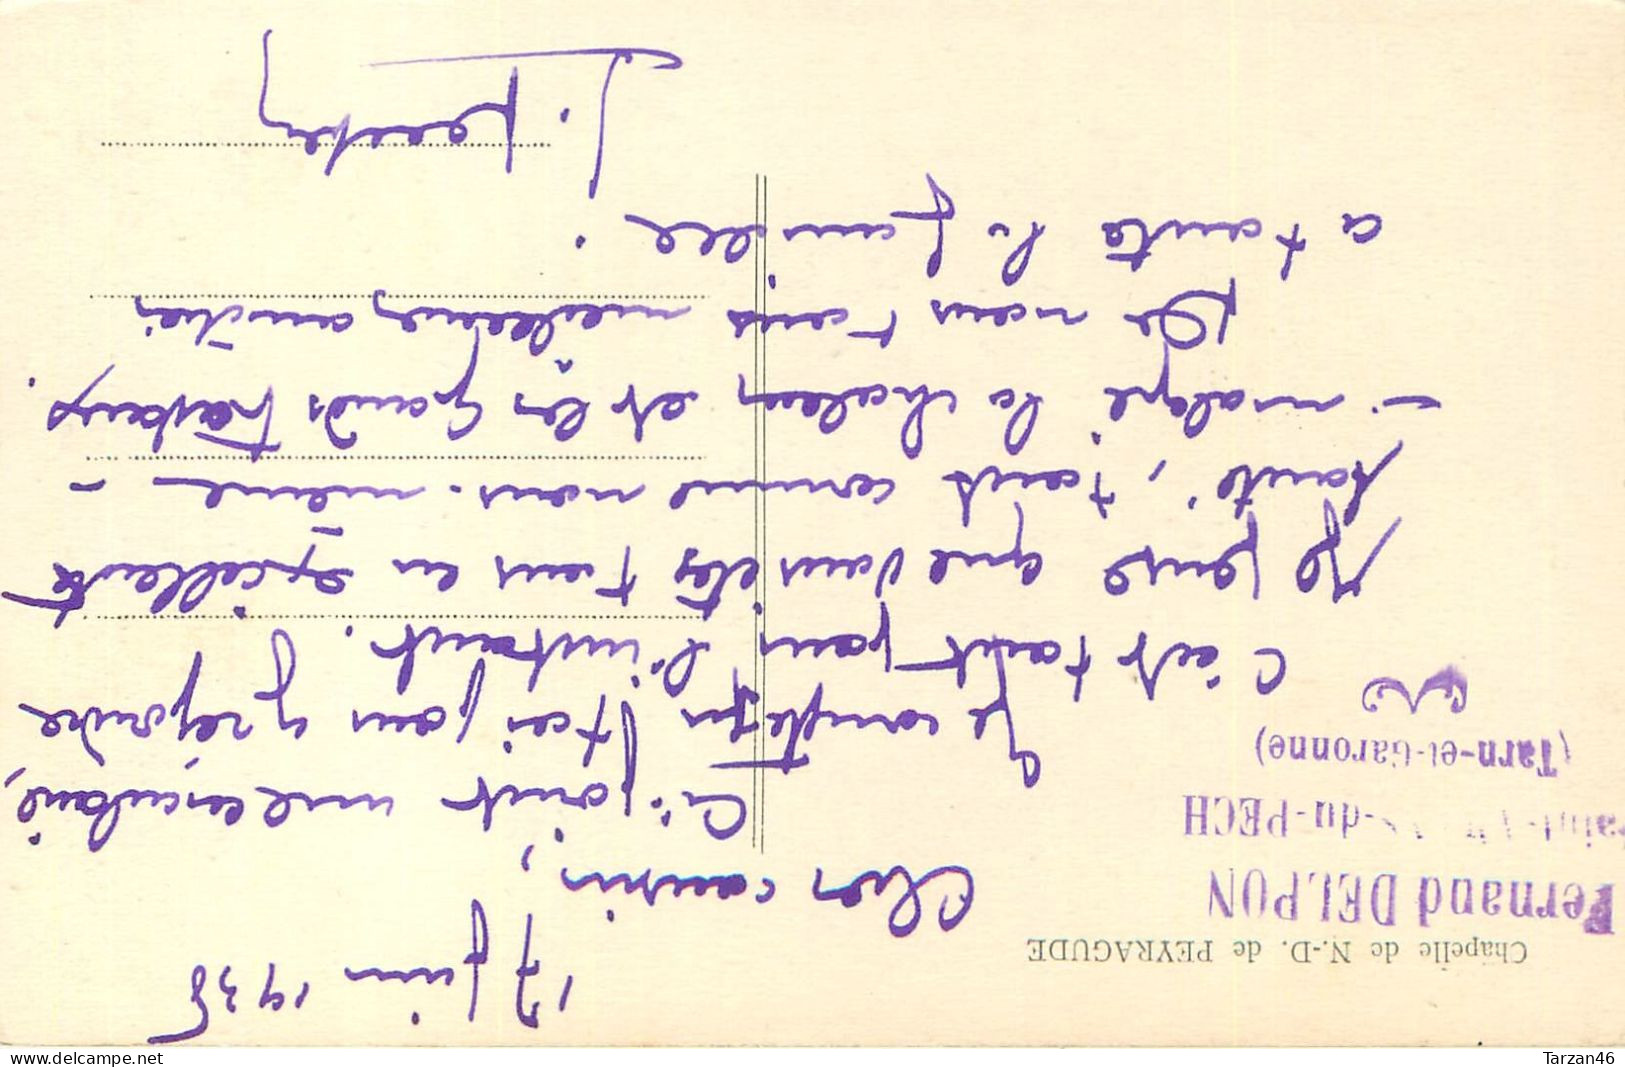 Chapelle de N.-D. de PEYRAGUDE
Fernand DELPON
-du-PECH
(Tarn-et-Garonne)
17 juin 1938
Cher cousin,
Ci joint une circulaire,
Je compte sur toi pour y répondre
C'est tout pour l'instant.
Je pense que vous êtes tous en excellente
santé, tout comme nous-même -
- malgré la chaleur et les grands travaux.
De nous tous meilleures amitiés
a toute la famille.
www.delcampe.net
Tarzan46